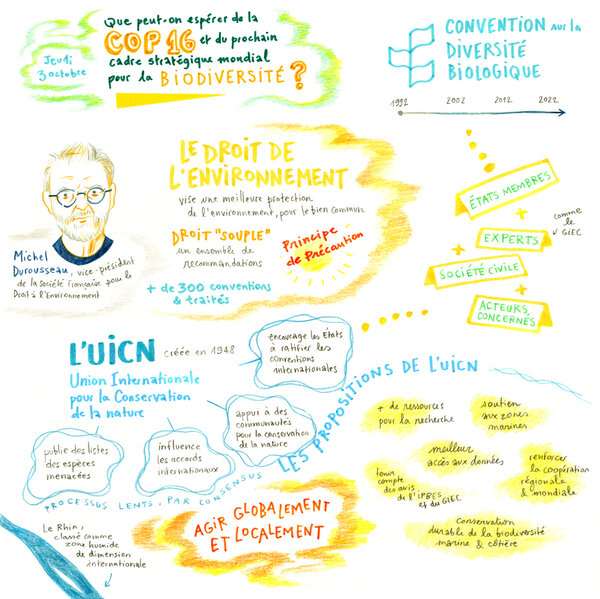 Jeudi
3 octobre
Que peut-on espérer de la
COP 16 et du prochain
cadre stratégique mondial
pour la BIODIVERSITÉ ?
CONVENTION sur la
DIVERSITÉ
BIOLOGIQUE
1992 2002 2012 2022
LE DROIT DE
L'ENVIRONNEMENT
vise une meilleure protection
de l'environnement, pour le bien commun
DROIT "SOUPLE"
un ensemble de
recommandations
Principe
de Précaution
+ de 300 conventions
& traités
Michel
Durousseau, vice-président
de la Société Française pour le
Droit à l'Environnement
ÉTATS MEMBRES
+
EXPERTS
comme
le GIEC
+
SOCIÉTÉ CIVILE
+
ACTEURS
CONCERNÉS
L'UICN créée en 1948
Union Internationale
pour la Conservation
de la nature
encourage les États
à ratifier les
conventions
internationales
appui à des
communautés
pour la conservation
de la nature
influence
les accords
internationaux
publie des listes
des espèces
menacées
PROCESSUS LENTS, PAR CONSENSUS
LES PROPOSITIONS DE L'UICN
+ de ressources
pour la recherche
soutien
aux zones
marines
meilleur
accès aux données
tenir
compte
des avis
de l'IPBES
et du GIEC
renforcer
la coopération
régionale
& mondiale
conservation
durable de la biodiversité
marine & côtière
AGIR GLOBALEMENT
ET LOCALEMENT
Le Rhin,
classé comme
zone humide
de dimension
internationale